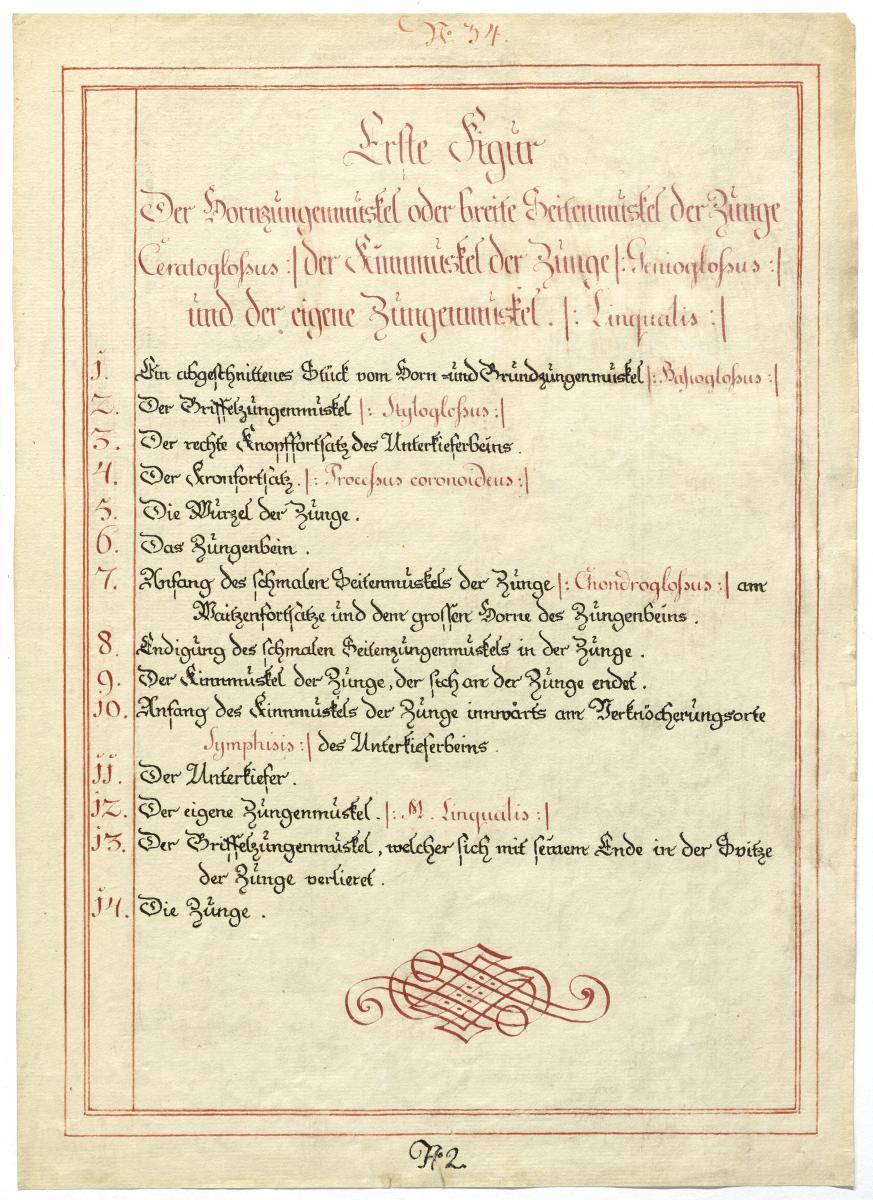 No 34.
Erste Figur
Der Hornzungenmuskel oder breite Seitenmuskel der Zunge
Ceratoglossus :/ der Kinnmuskel der Zunge /: Genioglossus :/
und der eigene Zungenmuskel. /: Linqualis :/
1. Ein abgeschnittenes Stück vom Horn - und Grundzungenmuskel /: Basioglossus :/
2. Der Griffelzungenmuskel /: Styloglossus :/
3. Der rechte Knopffortsatz des Unterkieferbeins.
4. Der Kronfortsatz. /: Processus coronoideus :/
5. Die Wurzel der Zunge.
6. Das Zungenbein.
7. Anfang des schmalen Seitenmuskels der Zunge /: Chondroglossus :/ am
Waitzenfortsatze und dem grossen Horne des Zungenbeins.
8. Endigung des schmalen Seitenzungenmuskels in der Zunge.
9. Der Kinnmuskel der Zunge, der sich an der Zunge endet.
10. Anfang des Kinnmuskels der Zunge innwärts am Verknöcherungsorte
Symphisis :/ des Unterkieferbeins.
11. Der Unterkiefer.
12. Der eigene Zungenmuskel. /: M. Linqualis :/
13. Der Griffelzungenmuskel, welcher sich mit seinem Ende in der Spitze
der Zunge verlieret.
14. Die Zunge.
No 2.